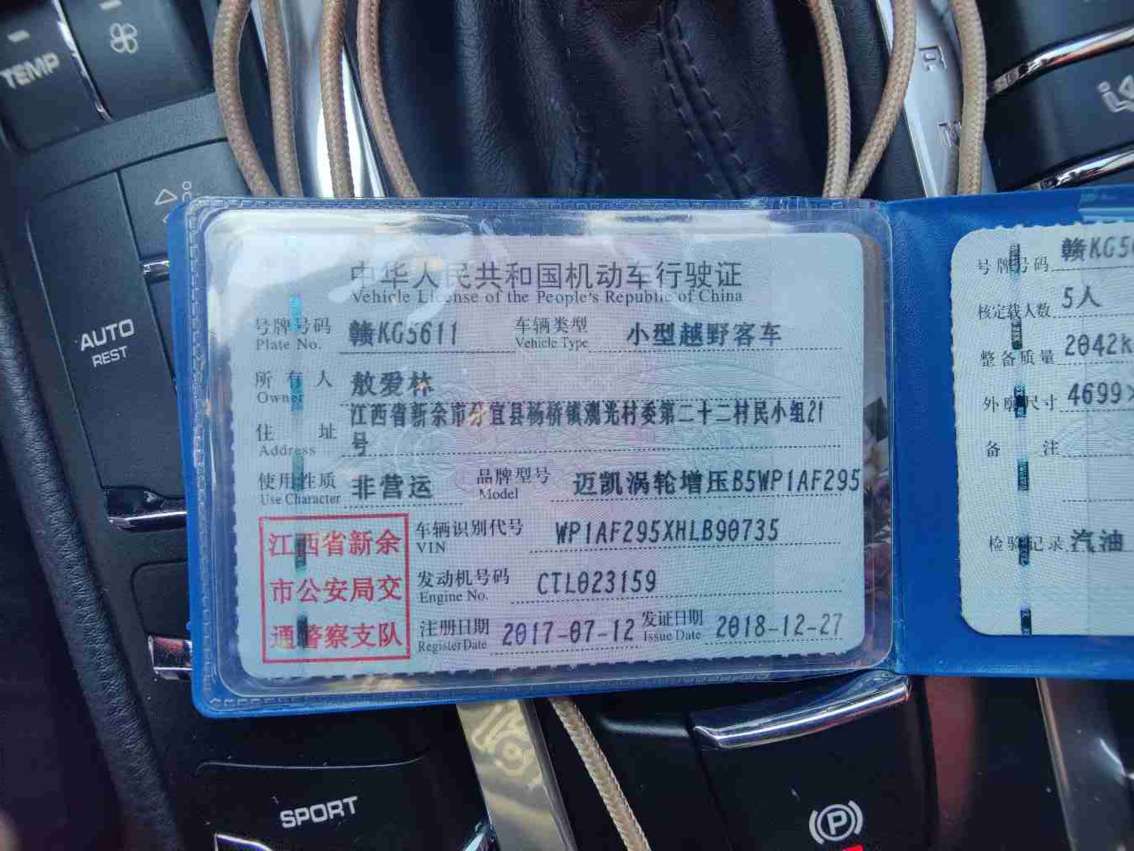 TEMP
R
AUTO
REST
中华人民共和国机动车行驶证
Vehicle License of the People's Republic of China
号牌号码 赣KG5611 车辆类型 小型越野客车
Plate No. Vehicle Type
所有人 敖爱林
Owner
住址 江西省新余市分宜县杨桥镇观光村委第二十二村民小组21
Address 号
使用性质 非营运 品牌型号 迈凯涡轮增压B5WP1AF295
Use Character Model
江西省新余
市公安局交
通警察支队
车辆识别代号 WP1AF295XHLB90735
VIN
发动机号码 CTL023159
Engine No.
注册日期 2017-07-12 发证日期 2018-12-27
Register Date Issue Date
号牌号码 赣KG5
核定载人数 5人
整备质量 2042k
外廓尺寸 4699×
备注
检验记录 汽油
SPORT
P